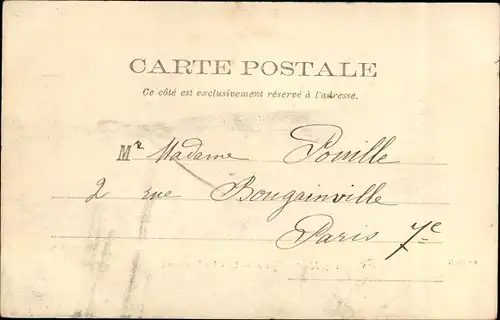 CARTE POSTALE
Ce côté est exclusivement réservé à l'adresse.
Mr Madame Pouille
2 rue Bougainville
Paris 7e